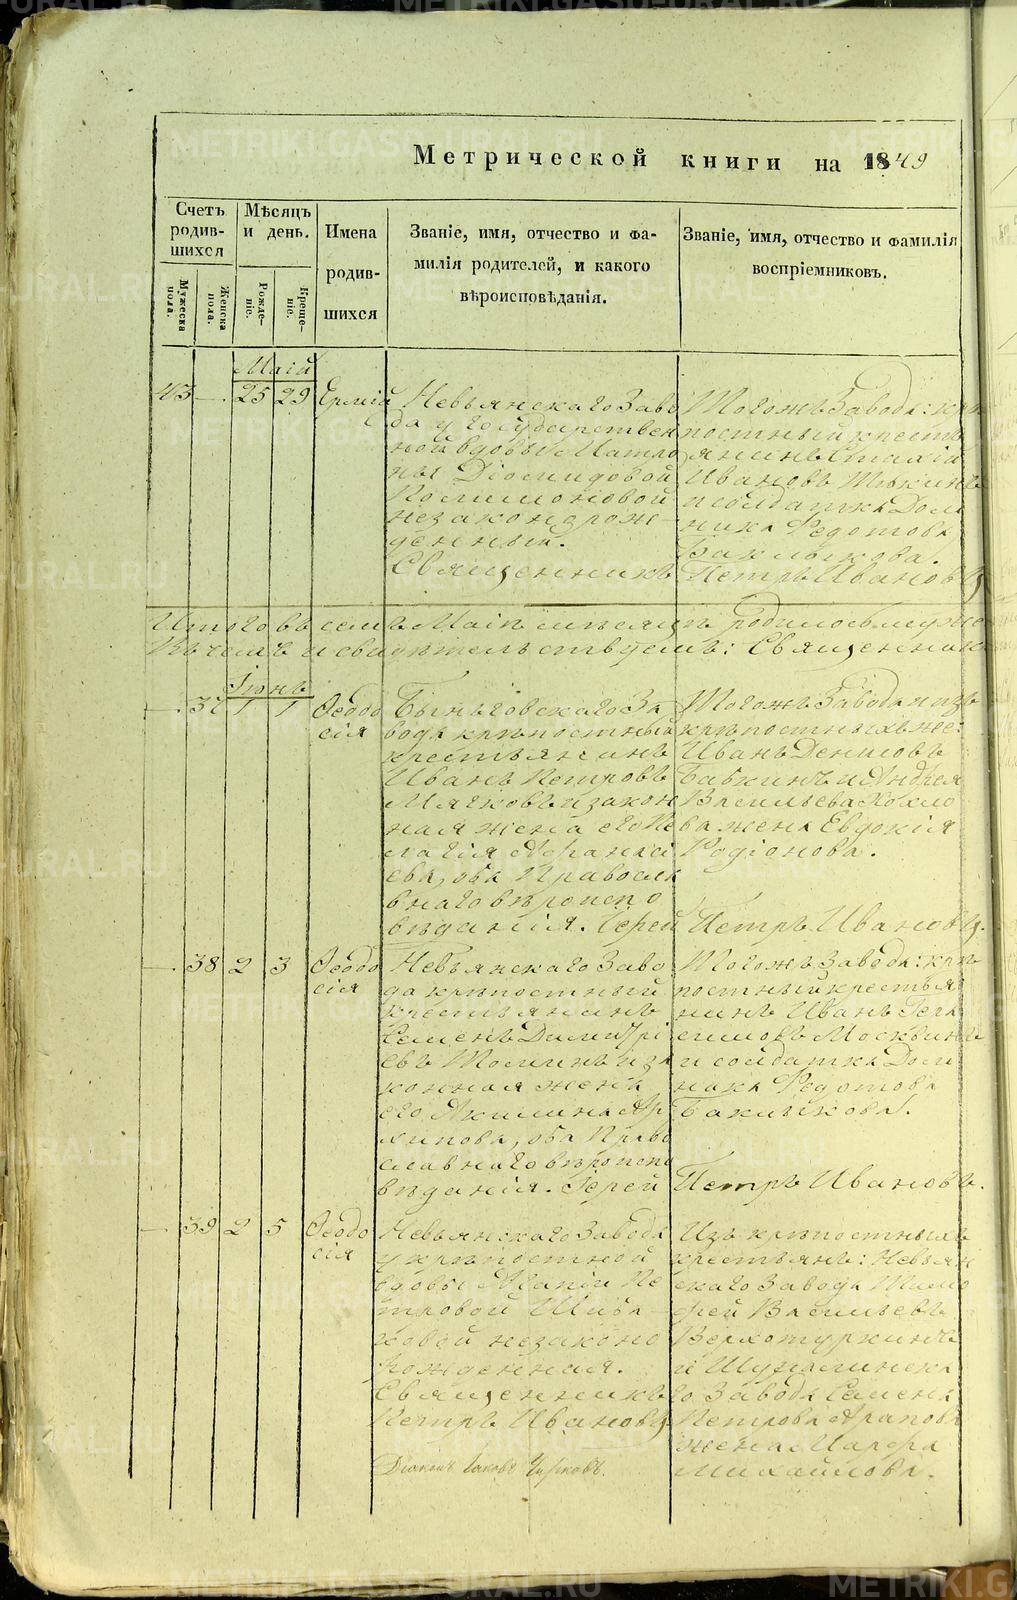 Метрической книги на 1849
Счетъ родив-шихся
Мѣсяцъ и день.
Имена родив-шихся
Званіе, имя, отчество и фа-
милія родителей, и какого
вѣроисповѣданія.
Званіе, имя, отчество и фамилія
воспріемниковъ.
Мужеска пола.
Женска пола.
Рожде-ніе.
Креще-ніе.
Маій
43 — 25 29 Ермій
Невьянскаго Заво
да у государствен
ной вдовы Матро
ны Діомидовой
незаконорож-
денный.
Священникъ Петръ Ивановъ
Тогожъ Завода: крѣ
постный кресть
янинъ
Ивановъ
и солдатка Дом
ника Федотова
Баклыкова.
Итого въ семъ Маіѣ мѣсяцѣ родилось муже
Въ чемъ и свидѣтельствуемъ: Священник
Іюнь
— 37 1 1 Ѳеодо
сія
Быньговскаго За
вода крѣпостный
крестьянинъ
Иванъ Петровъ
Мягковъ и закон
ная жена его Пе
лагія Афанасі
ева, оба Правосла
внаго вѣроиспо
вѣданія. Іерей Петръ Ивановъ
Тогожъ Завода и изъ
крѣпостныхъ же:
Иванъ Денисовъ
Бабкинъ и Андрея
Васильева Козло
ва жена Евдокія
Родіонова.
— 38 2 3 Ѳеодо
сія
Невьянскаго Заво
да крѣпостный
крестьянинъ
Семенъ Димитрі
евъ Томинъ и за
конная жена
его Акилина Ар
хипова, оба Право
славнаго вѣроиспо
вѣданія. Іерей Петръ Ивановъ.
Тогожъ Завода: крѣ
постный крестья
нинъ Иванъ Гера
симовъ Москвинъ
и солдатка Дом
ника Федотова
Баклыкова.
— 39 2 5 Ѳеодо
сія
Невьянскаго Завода
у крѣпостной
вдовы Агапіи Пе
тровой
незаконо
рожденная.
Священникъ
Петръ Ивановъ
Діаконъ Іаковъ Чирковъ.
Изъ крѣпостныхъ
крестьянъ: Невьян
скаго Завода Тимо
фей Васильевъ
Верхотуркинъ
и Шуралинска
го Завода Семена
Петрова Арапова
жена Марфа
Михайлова.